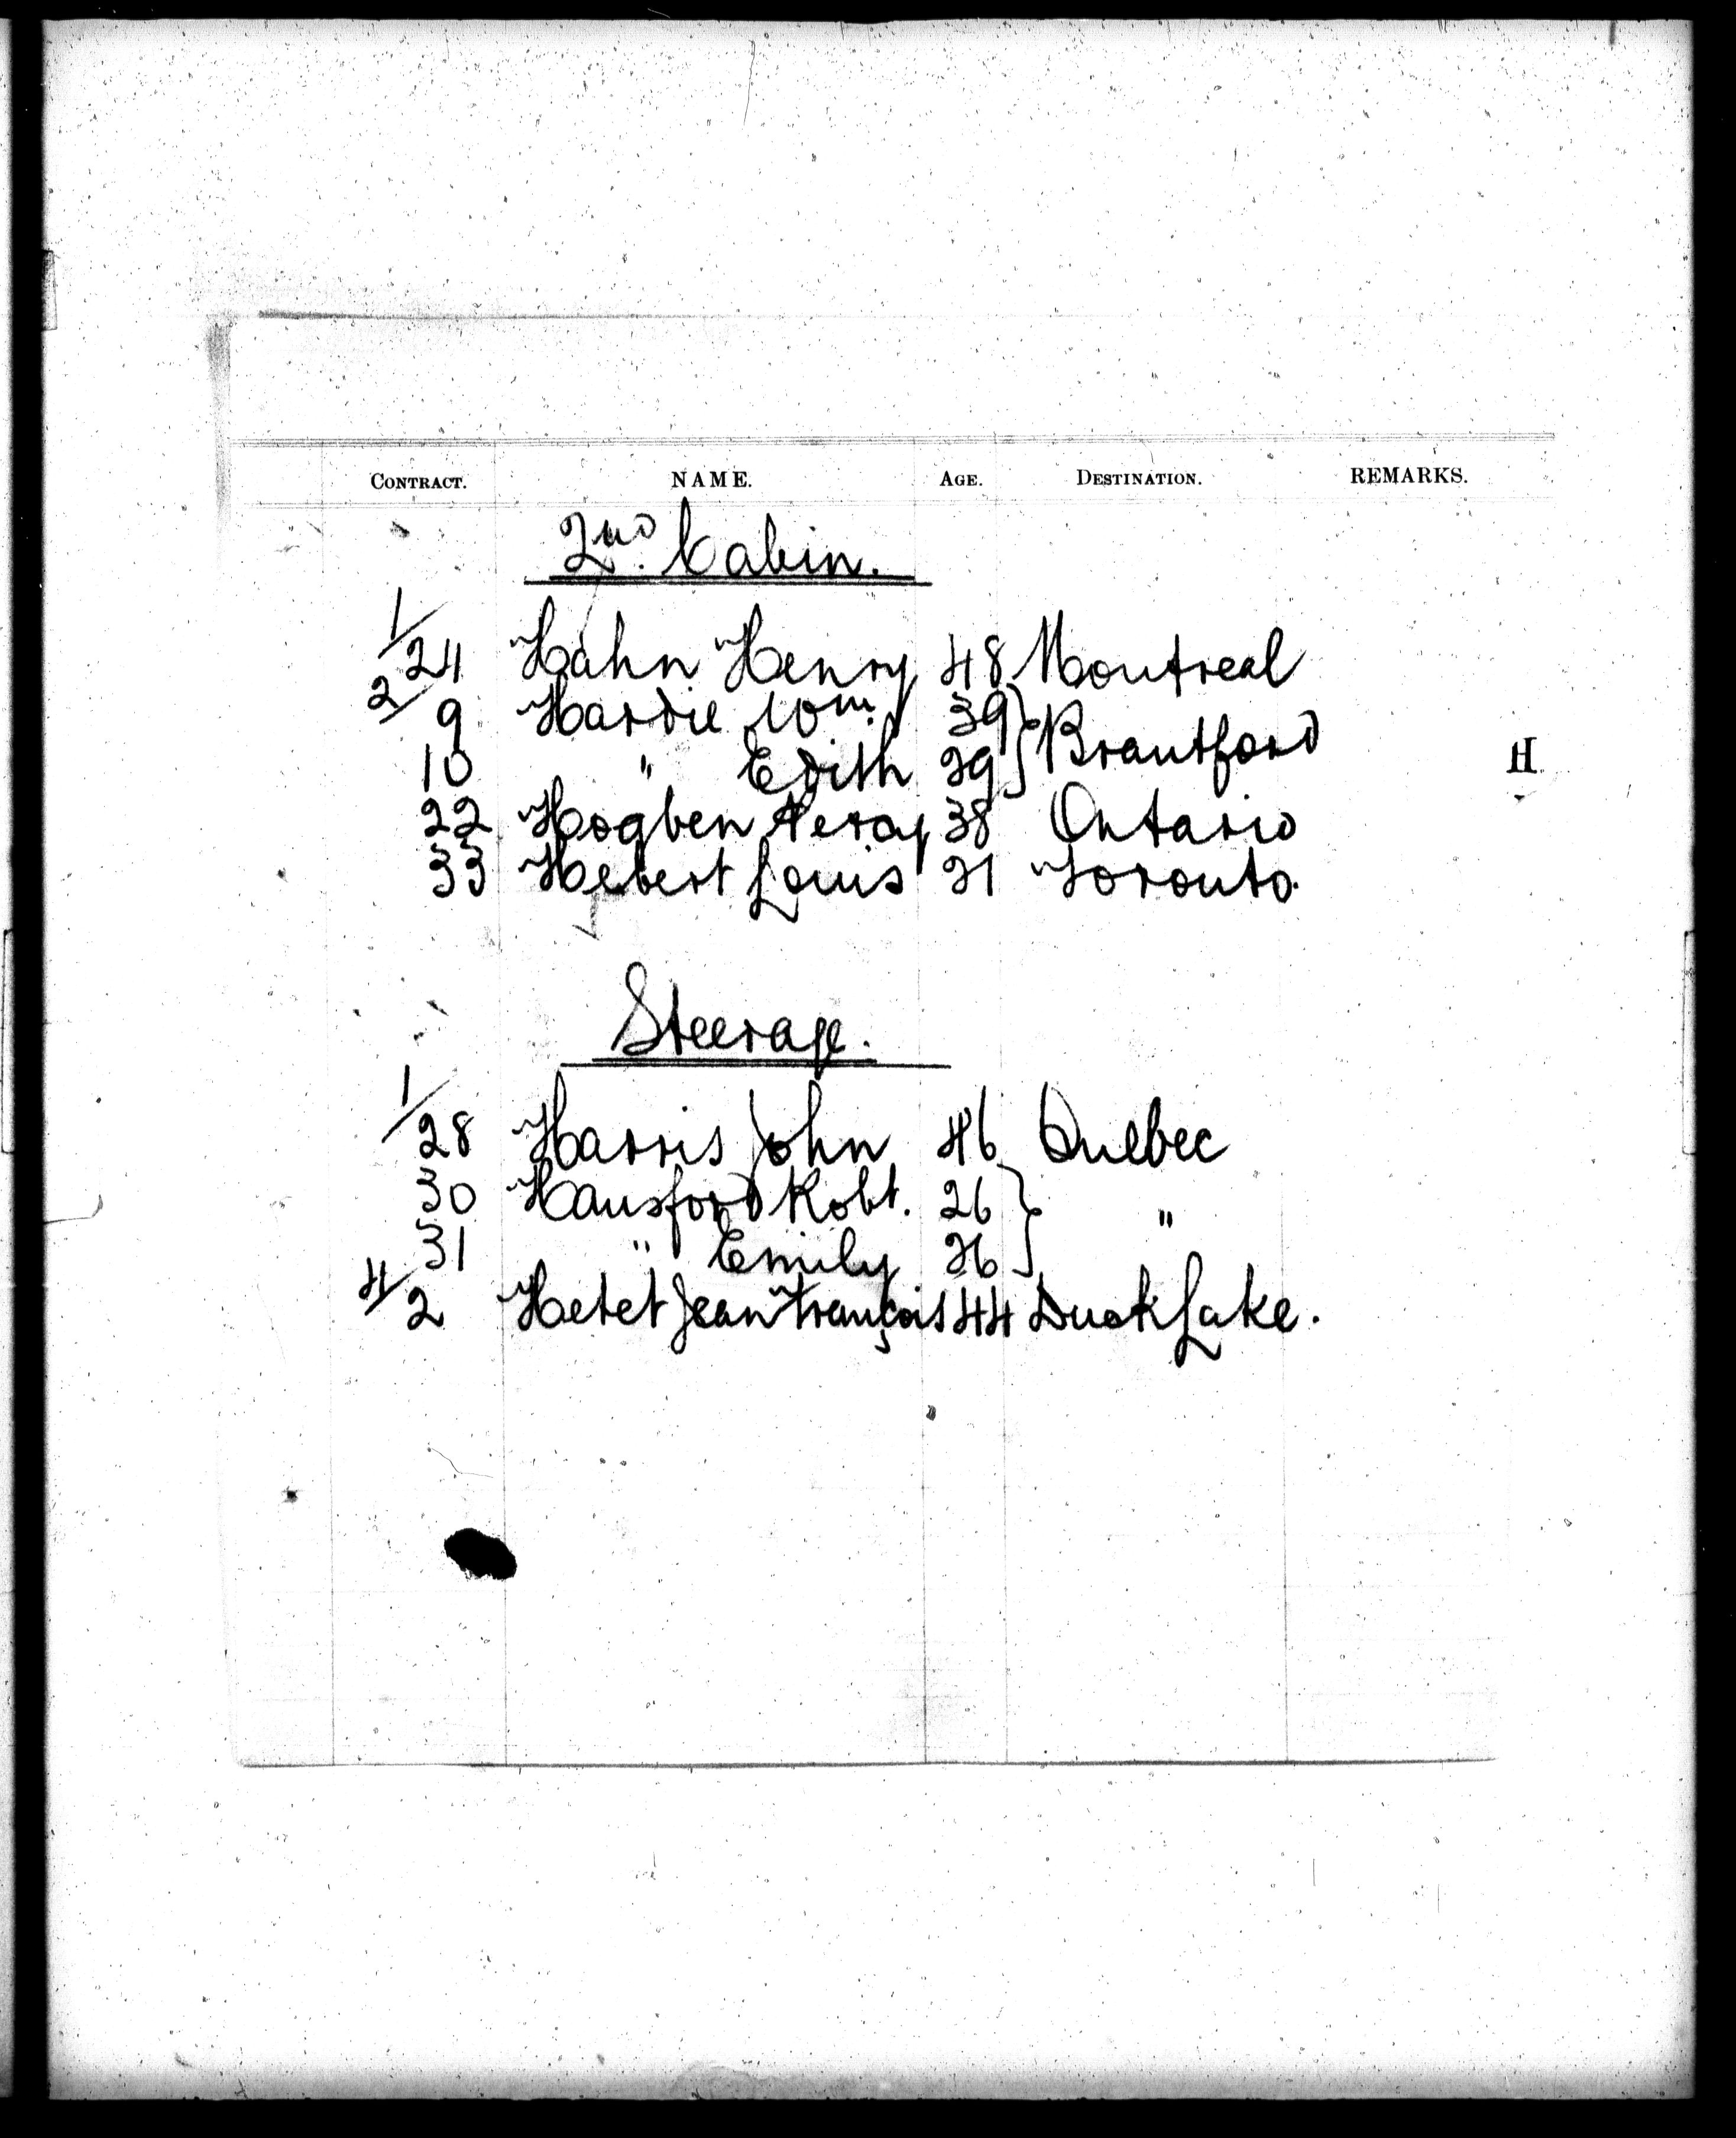 CONTRACT. NAME. AGE. DESTINATION. REMARKS.
2nd. Cabin.
1/24 Hahn Henry 48 Montreal
2/9 Hardie Wm. 39 } Brantford
10 " Edith 29 }
H
22 Hogben Percy 38 Ontario
33 Hebert Louis 21 Toronto.
Steerage.
1/28 Harris John 46 Quebec
30 Hansford Robt. 26 } "
31 " Emily 26 }
4/2 Hetet Jean François 44 Duck Lake.